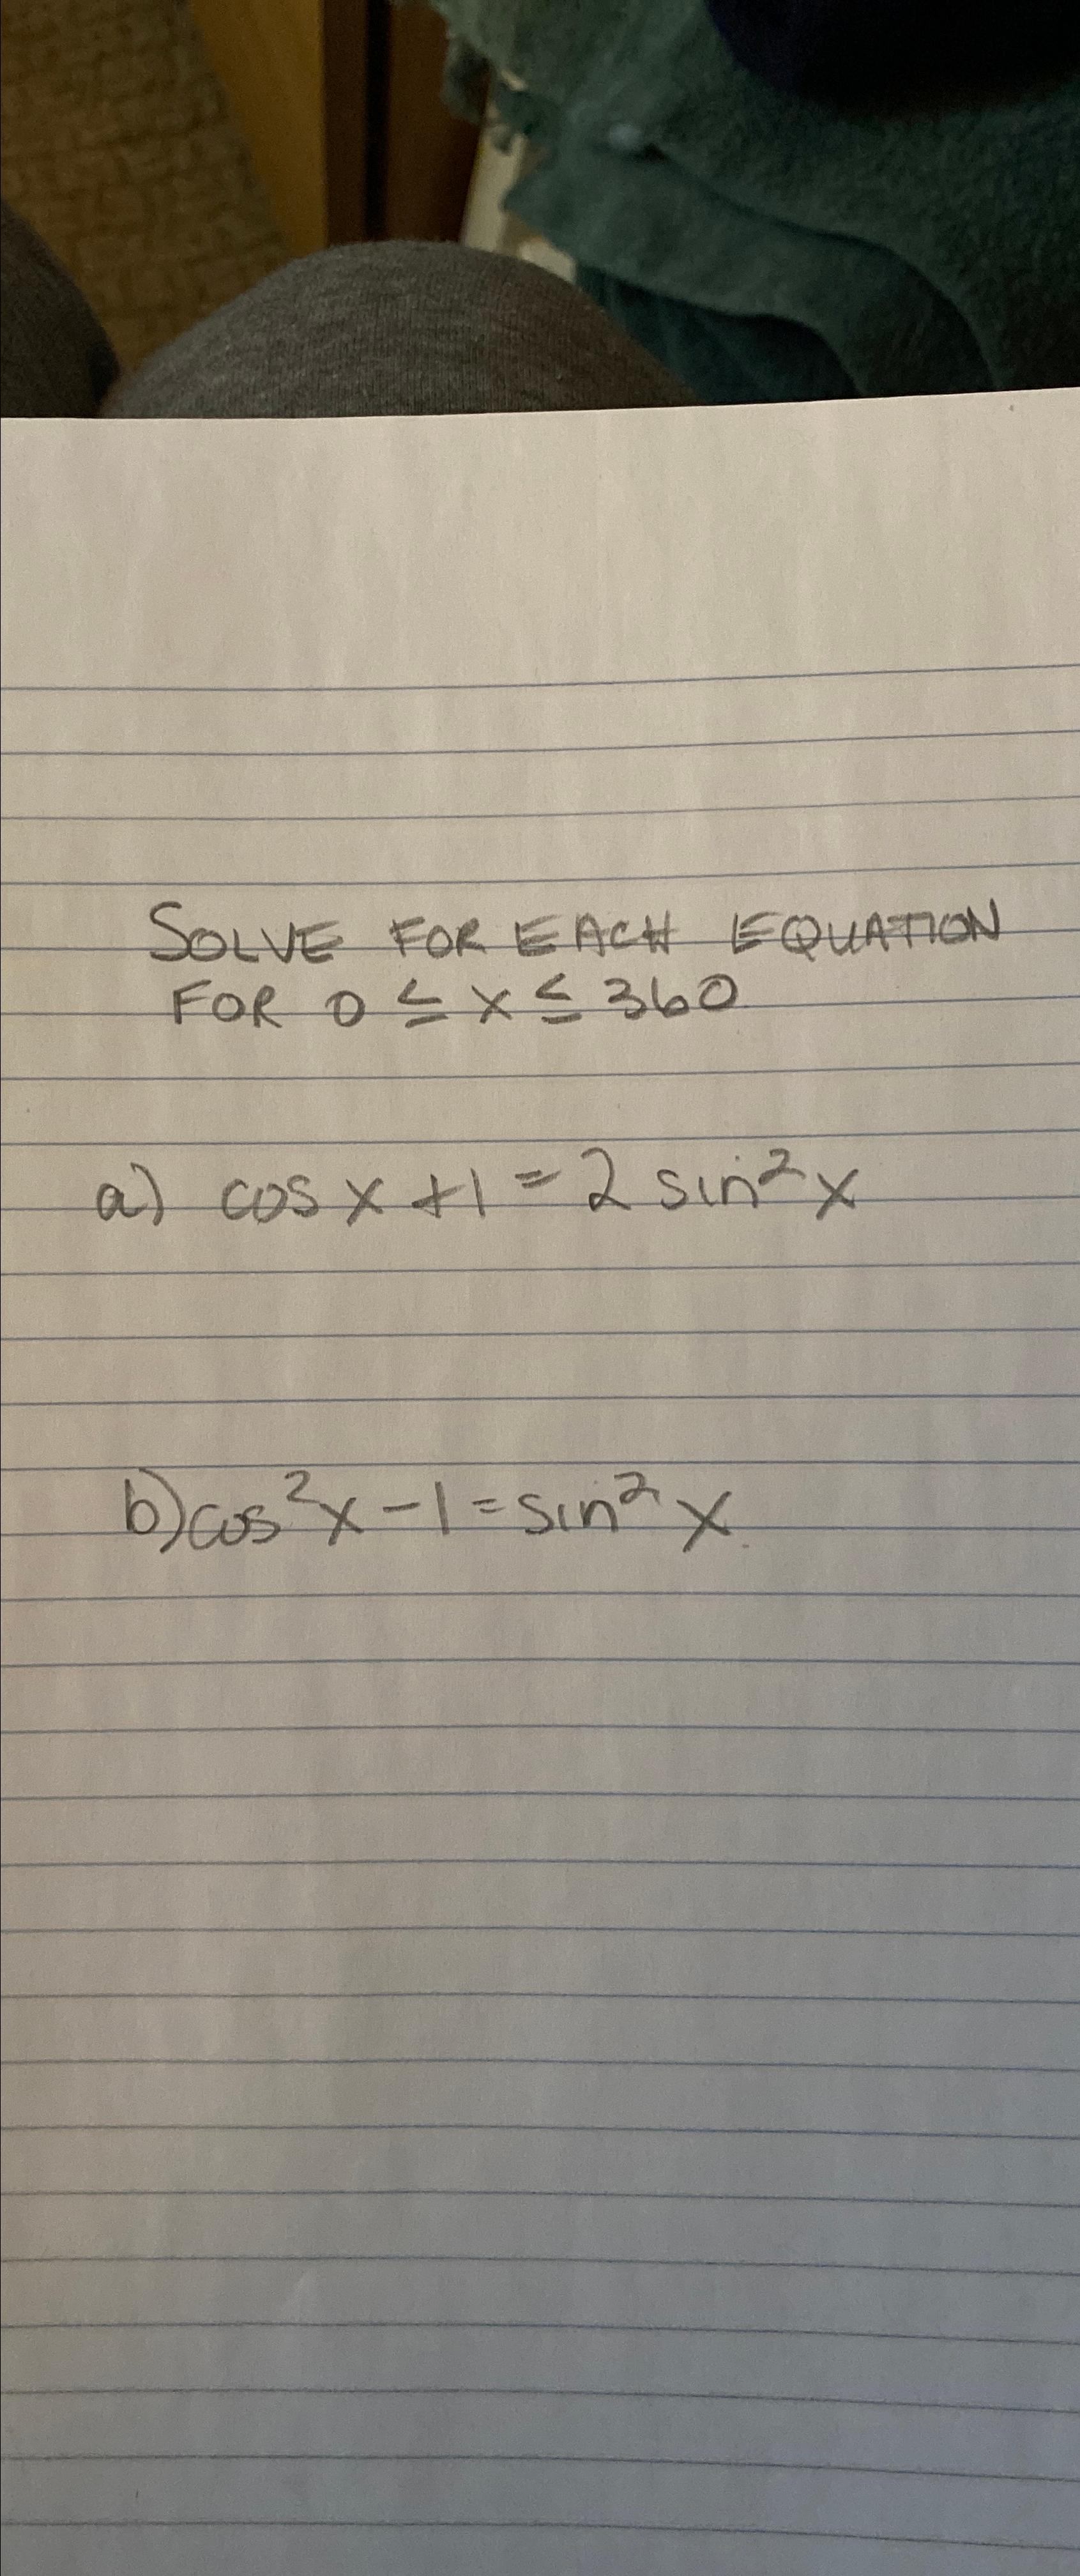 SOLVE FOR EACH EQUATION
FOR 0 ≤ x ≤ 360
a) cos x + 1 = 2 sin² x
b) cos² x - 1 = sin² x